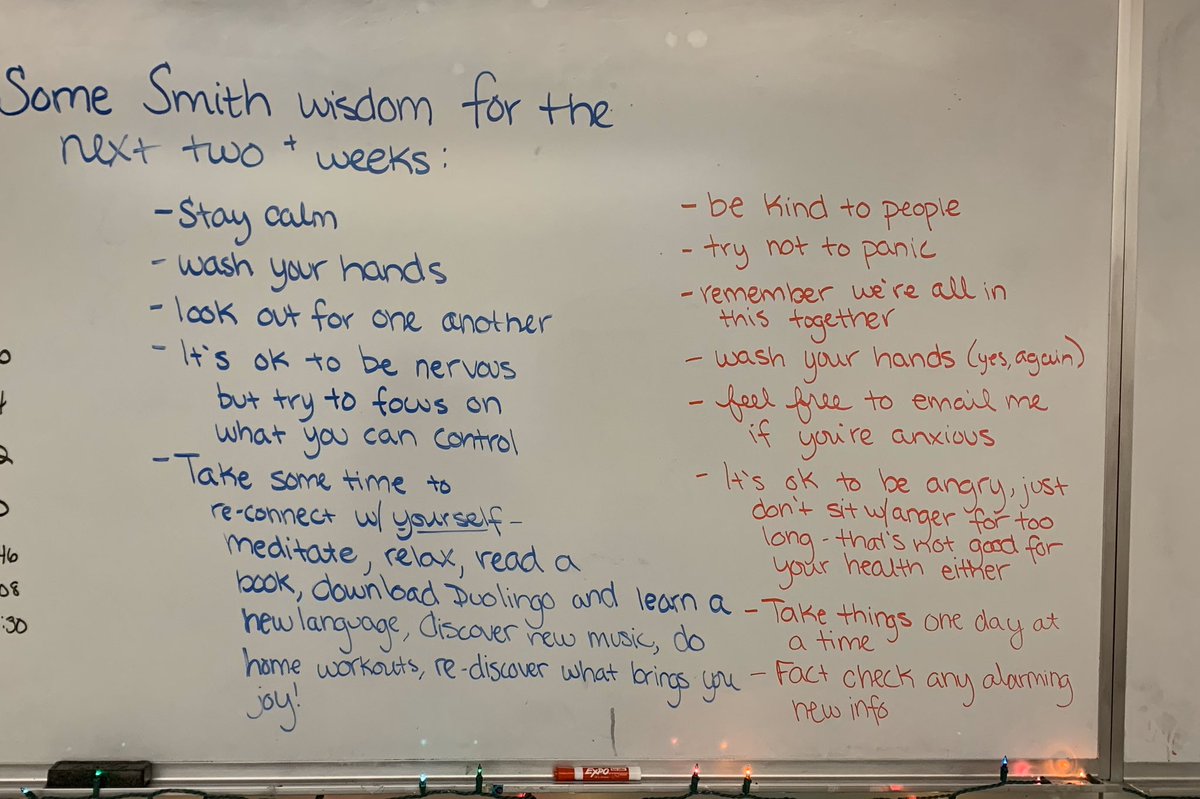 Some Smith wisdom for the
next two + weeks:
- Stay calm
- wash your hands
- look out for one another
- It's ok to be nervous
but try to focus on
what you can control
- Take some time to
re-connect w/ yourself -
meditate, relax, read a
book, download Duolingo and learn a
new language, discover new music, do
home workouts, re-discover what brings you
joy!
- be kind to people
- try not to panic
- remember we're all in
this together
- wash your hands (yes, again)
- feel free to email me
if you're anxious
- It's ok to be angry, just
don't sit w/anger for too
long - that's not good for
your health either
- Take things one day at
a time
- Fact check any alarming
new info
46
08
:30
EXPO